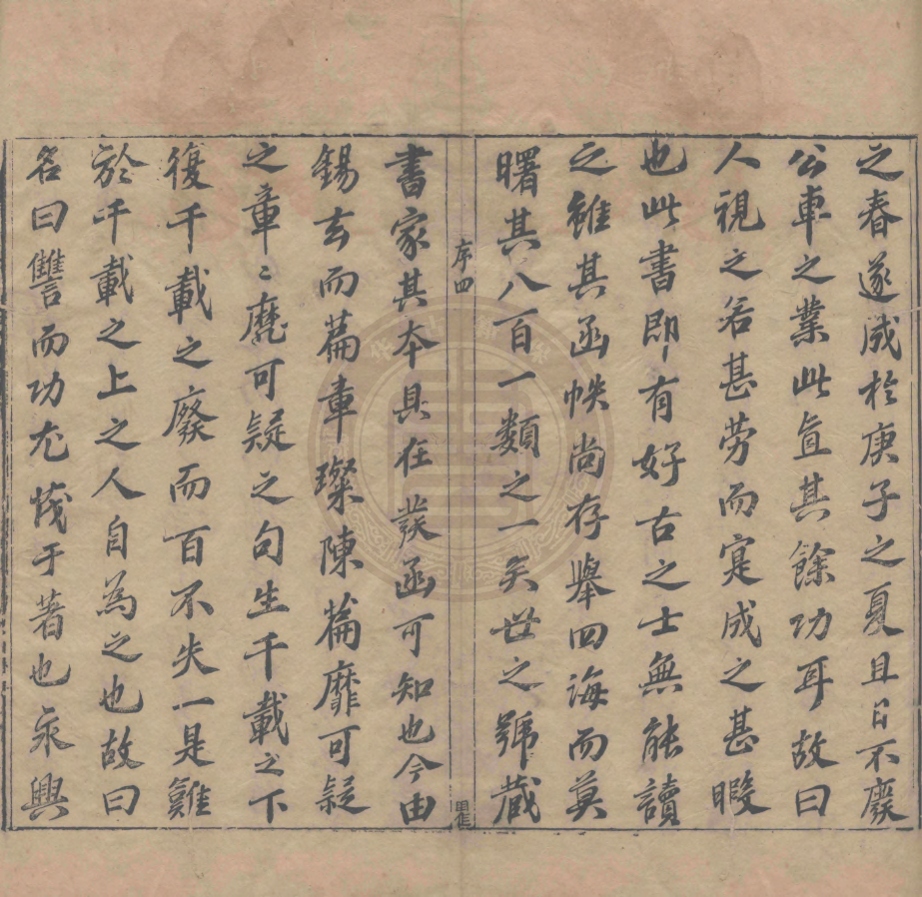 之春遂成於庚子之夏且日不廢
公車之業此直其餘功耳故曰
人視之若甚勞而寔成之甚暇
也此書即有好古之士無能讀
之雖其函帙尚存舉四海而莫
曙其八百一類之一矣世之號藏
序四
書家其本具在發函可知也今由
錫玄而篇章璨陳篇靡可疑
之章〻靡可疑之句生千載之下
復千載之廢而百不失一是雖
於千載之上之人自為之也故曰
名曰讐而功尤茂于著也永興